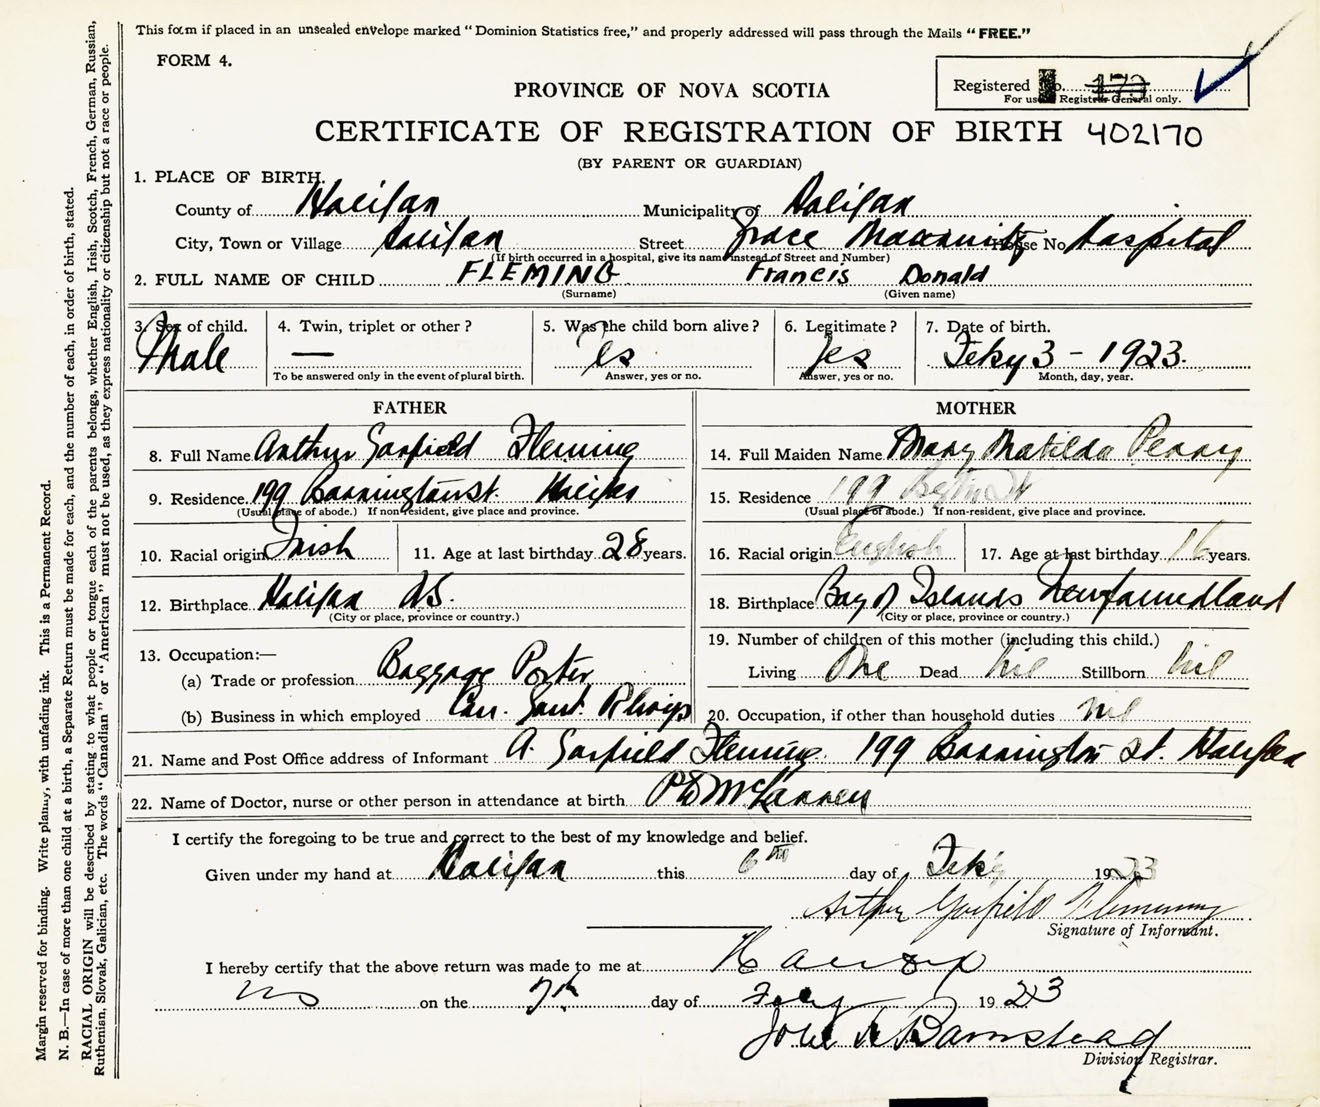 This form if placed in an unsealed envelope marked "Dominion Statistics free," and properly addressed will pass through the Mails "FREE."
FORM 4.
Registered No. 173
For use of Registrar-General only.
PROVINCE OF NOVA SCOTIA
CERTIFICATE OF REGISTRATION OF BIRTH 402170
(BY PARENT OR GUARDIAN)
1. PLACE OF BIRTH.
County of Halifax Municipality of Halifax
City, Town or Village Halifax Street Grace Maternity House No. Hospital
(If birth occurred in a hospital, give its name instead of Street and Number)
2. FULL NAME OF CHILD FLEMING Francis Donald
(Surname) (Given name)
3. Sex of child. 4. Twin, triplet or other? 5. Was the child born alive? 6. Legitimate? 7. Date of birth.
Male — Yes Yes Feby 3 - 1923.
To be answered only in the event of plural birth. Answer, yes or no. Answer, yes or no. Month, day, year.
FATHER
8. Full Name Arthur Garfield Fleming
9. Residence 199 Barrington St. Halifax
(Usual place of abode.) If non-resident, give place and province.
10. Racial origin Irish 11. Age at last birthday 28 years.
12. Birthplace Halifax N.S.
(City or place, province or country.)
13. Occupation:—
(a) Trade or profession Baggage Porter
(b) Business in which employed Can. Govt. Rlways
MOTHER
14. Full Maiden Name Mary Matilda Penny
15. Residence 199 St
(Usual place of abode.) If non-resident, give place and province.
16. Racial origin English 17. Age at last birthday 16 years.
18. Birthplace Bay of Islands Newfoundland
(City or place, province or country.)
19. Number of children of this mother (including this child.)
Living One Dead nil Stillborn nil
20. Occupation, if other than household duties nil
21. Name and Post Office address of Informant A. Garfield Fleming 199 Barrington St. Halifax
22. Name of Doctor, nurse or other person in attendance at birth
I certify the foregoing to be true and correct to the best of my knowledge and belief.
Given under my hand at Halifax this 6th day of Feby 1923
Arthur Garfield Flemming
Signature of Informant.
I hereby certify that the above return was made to me at Halifax
NS on the 7th day of Feby 1923
John A Barnstead
Division Registrar.
Margin reserved for binding. Write plainly, with unfading ink. This is a Permanent Record.
N. B.—In case of more than one child at a birth, a Separate Return must be made for each, and the number of each, in order of birth, stated.
RACIAL ORIGIN will be described by stating to what people or tongue each of the parents belongs, whether English, Irish, Scotch, French, German, Russian,
Ruthenian, Slovak, Galician, etc. The words "Canadian" or "American" must not be used, as they express nationality or citizenship but not a race or people.